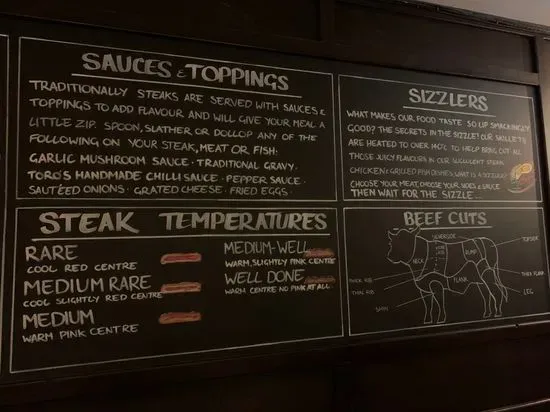 SAUCES & TOPPINGS
TRADITIONALLY STEAKS ARE SERVED WITH SAUCES &
TOPPINGS TO ADD FLAVOUR AND WILL GIVE YOUR MEAL A
LITTLE ZIP. SPOON, SLATHER OR DOLLOP ANY OF THE
FOLLOWING ON YOUR STEAK, MEAT OR FISH:
GARLIC MUSHROOM SAUCE · TRADITIONAL GRAVY ·
TORO'S HANDMADE CHILLI SAUCE · PEPPER SAUCE ·
SAUTÉED ONIONS · GRATED CHEESE · FRIED EGGS ·
SIZZLERS
WHAT MAKES OUR FOOD TASTE SO LIP SMACKINGLY
GOOD? THE SECRETS IN THE SIZZLE! OUR SKILLETS
ARE HEATED TO OVER 140°C TO HELP BRING OUT ALL
THOSE JUICY FLAVOURS IN OUR SUCCULENT STEAK
CHICKEN & GRILLED FISH DISHES. WHAT IS A SIZZLER?
CHOOSE YOUR MEAT, CHOOSE YOUR SIDES & SAUCE
THEN WAIT FOR THE SIZZLE...
STEAK TEMPERATURES
RARE
COOL RED CENTRE
MEDIUM RARE
COOL SLIGHTLY RED CENTRE
MEDIUM
WARM PINK CENTRE
MEDIUM-WELL
WARM, SLIGHTLY PINK CENTRE
WELL DONE
WARM CENTRE NO PINK AT ALL.
BEEF CUTS
SILVERSIDE
TOPSIDE
NECK
RUMP
THICK RIB
THIN RIB
FLANK
THICK FLANK
LEG
SHIN